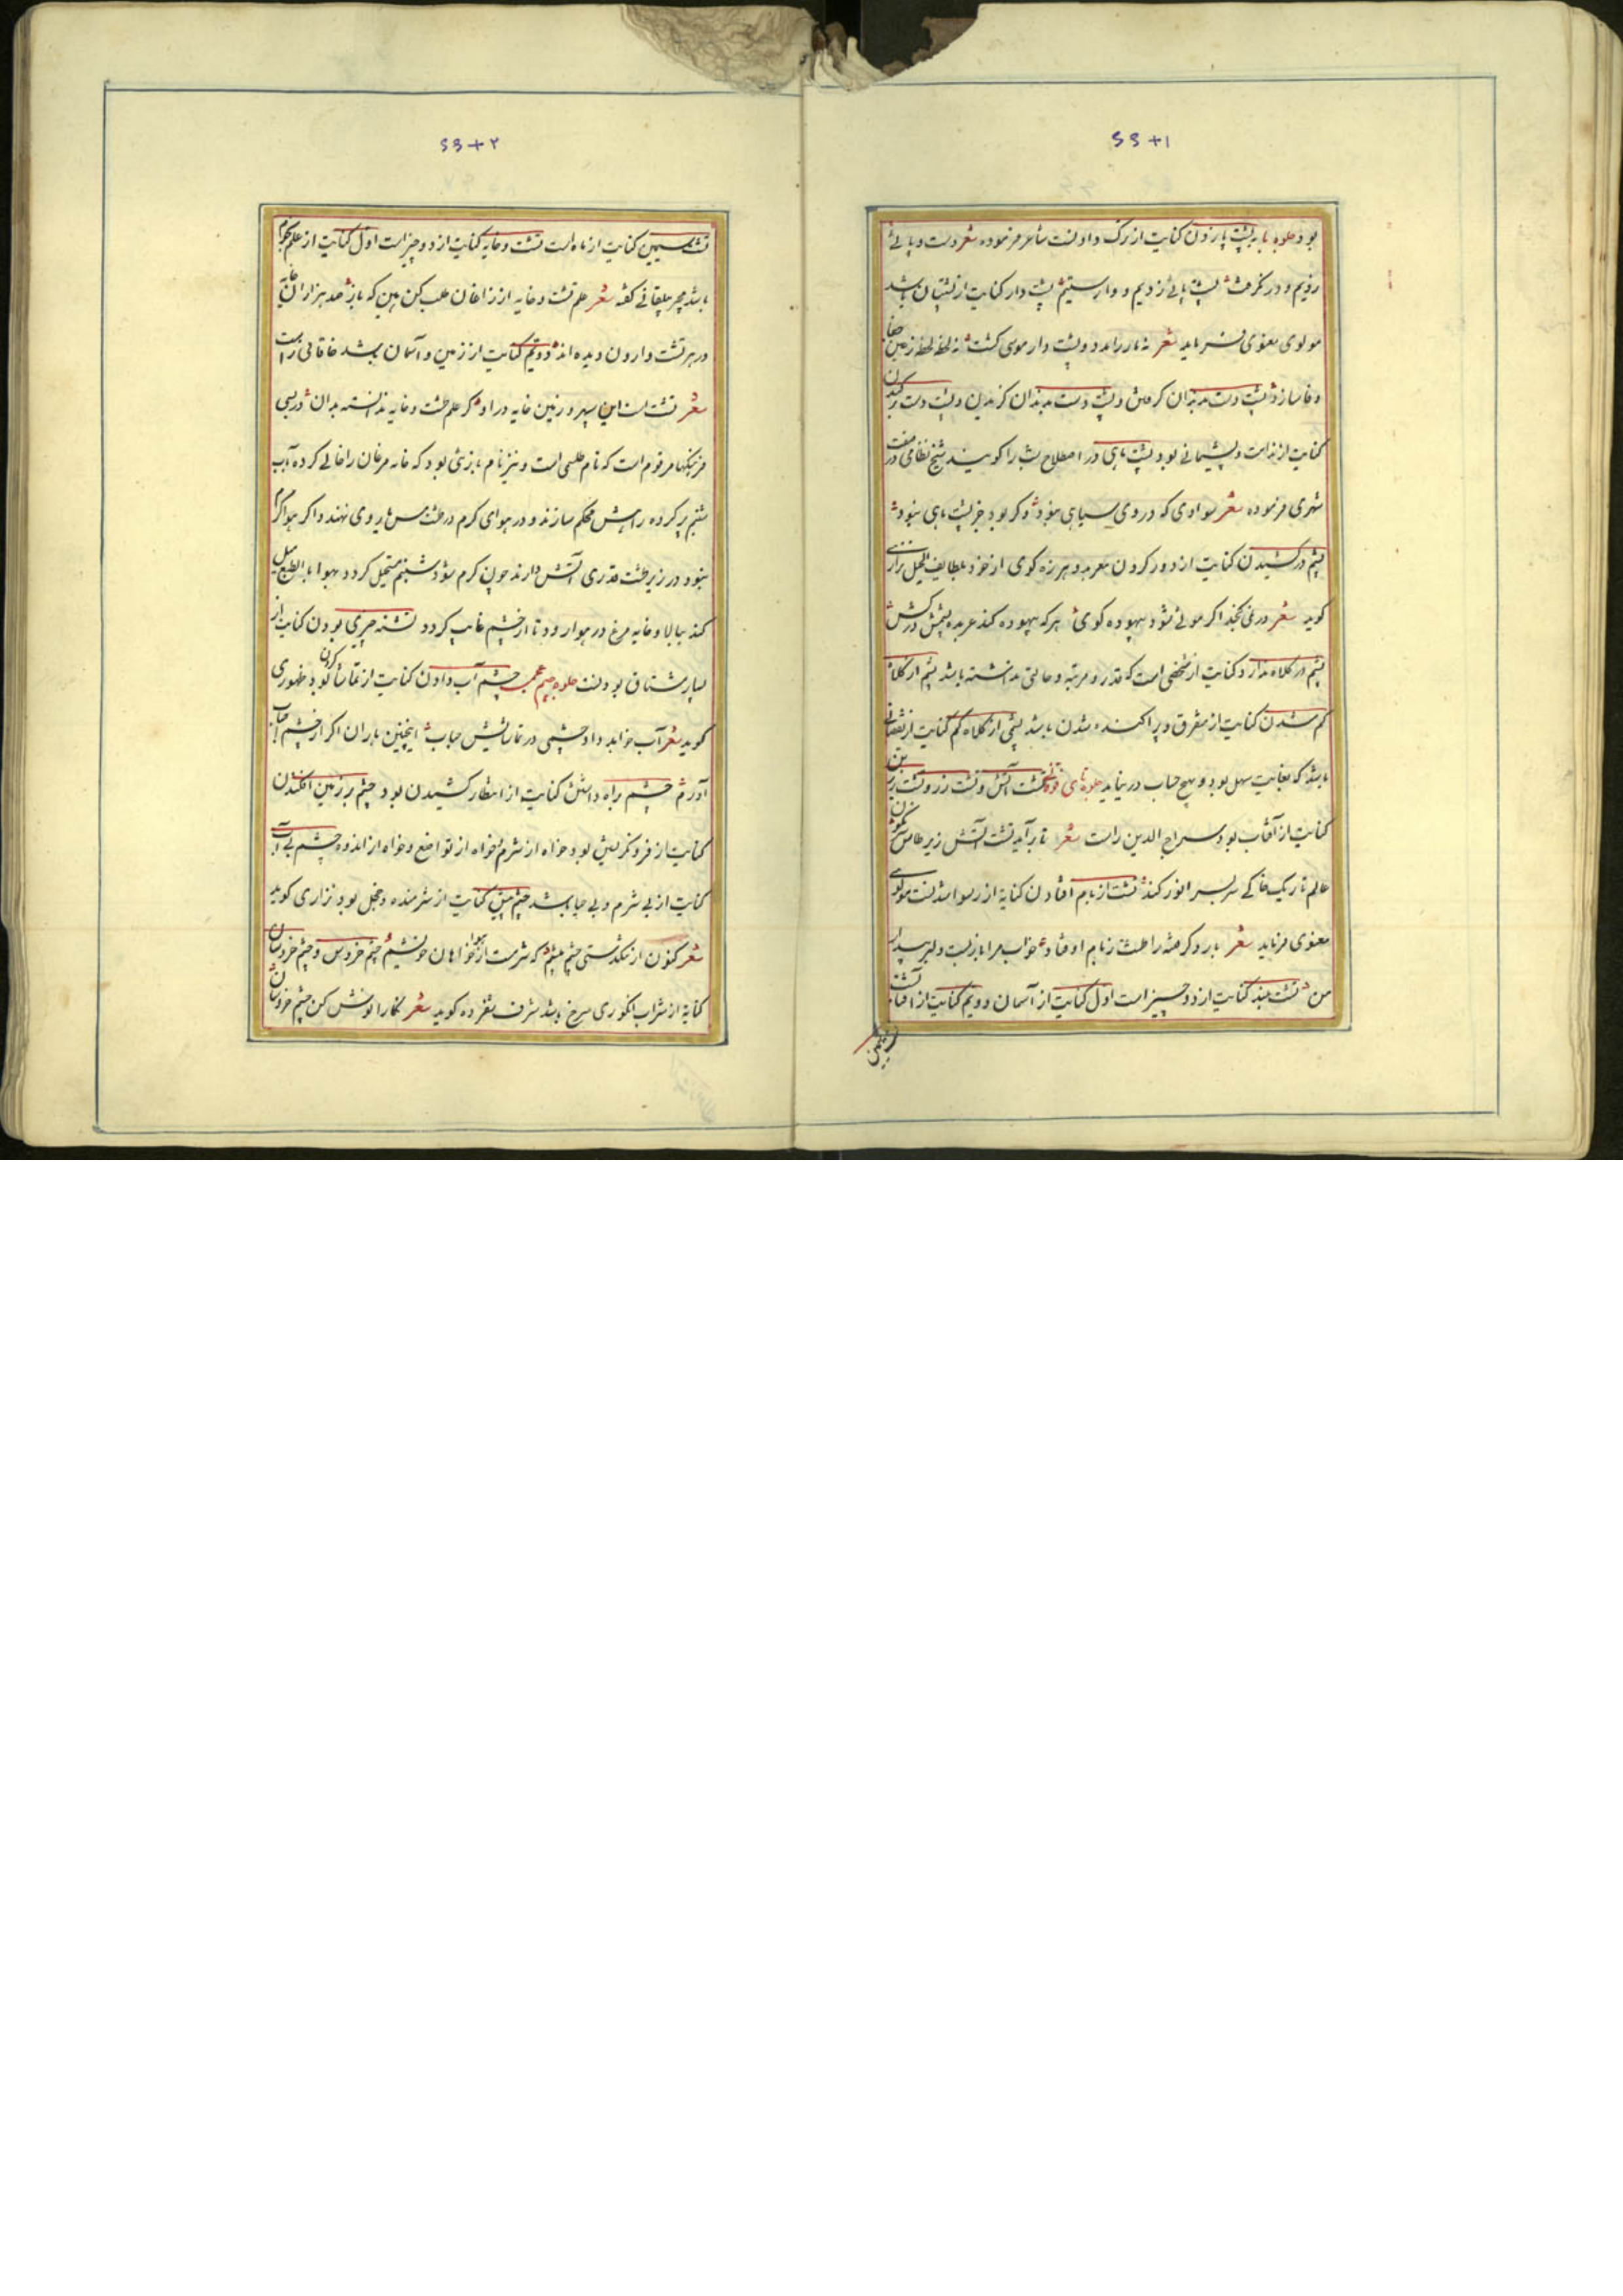 ۵۵+۱
بود جلوه بای پشت پا زدن کنایت از ترک دادنست شاعر فرموده شعر دست و پائی
زدیم و درنگرفت پشت پائی زدیم و وارستیم پشت دار کنایت از پشتیبان باشد
مولوی معنوی فرماید شعر نه مار را مدد و پشت دار موسی گشت نه لحظه لحظه زعین جفا
وفا سازد پشت دست بدندان گرفتن و پشت دست بدندان گزیدن و پشت دست کندن
کنایت از ندامت و پشیمانی بود پشت ماهی در اصطلاح شب را گویند شیخ نظامی در صفت
شبی فرموده شعر سوادی که در وی سیاهی نبود وگر بود جز پشت ماهی نبود
پشم درکشیدن کنایت از دور کردن معربد و هرزه گوی از خود بلطایف الحیل نزاری
گوید شعر در نمی گنجد اگر موئی شود بیهوده گوی هر که بیهوده کند عربده پشمش درکش
پشم در کلاه ندارد کنایت از شخصی است که قدر و مرتبه و حالتی نداشته باشد پشم از کلاه
کم شدن کنایت از متفرق و پراکنده شدن باشد پشمی از کلاه کم کنایت از نقصانی
باشد که بغایت سهل بود و بهیچ حساب درنیاید جلوه تای فوقانی تشت آتش و تشت زر و تشت زرین
کنایت از آفتاب بود سراج الدین راست شعر تا برآید تشت آتش زیر طاس نگون
عالم تاریک خاکی سربسر انور کند تشت از بام افتادن کنایه از رسوا شدنست مولوی
معنوی فرماید شعر بار دگر فتنه را طشت ز بام اوفتاد خواب مرا باز بست دلبر بیدار
من تشت بلند کنایت از دو چیز است اول کنایت از آسمان دویم کنایت از آفتاب تشت
سیمین
۵۵+۲
تشت سیمین کنایت از ماه است تشت و خایه کنایت از دو چیز است اول کنایت از علم نجوم
باشد مجیر بیلقانی گفته شعر علم تشت و خایه از زاغان طلب کن بهین که باز صد هزاران خایه
در هر تشت وارون دیده اند دویم کنایت از زمین و آسمان باشد خاقانی راست
شعر تشت است این سپهر و زمین خایه در او گر علم طشت و خایه ندانسته بدان در بعضی
فرهنگها مرقوم است که نام طلسمی است و نیز نام بازیی بود که خایه مرغان را خالی کرده آب
شبنم پر کرده راهش محکم سازند و در هوای گرم در طشت مس یا روی نهند و اگر هوا گرم
نبود در زیر طشت قدری آتش دارند چون گرم شود شبنم مستحیل گردد بهوا بالطبع میل
کند ببالا و خایه مرغ در هوا رود تا از چشم غایب گردد تشنه چیزی بودن کنایت از
بسیار مشتاق بودنست جلوه جیم عجمی چشم آب دادن کنایت از تماشا کردن بود ظهوری
گوید شعر آب خواهد داد چشمی در تماشایش حباب اینچنین باران اگر از چشم حباب
آورم چشم براه داشتن کنایت از انتظار کشیدن بود چشم بر زمین افکندن
کنایت از فرو نگریستن بود خواه از شرم خواه از تواضع و خواه از اندوه چشم بی آب
کنایت از بی شرم و بی حیا باشد چشم پیش کنایت از شرمنده و خجل بود نزاری گوید
شعر کنون از تنگدستی چشم پیشم که شرمست از هواخواهان خویشم چشم خروس و چشم خروسان
کنایه از شراب انگوری سرخ باشد شرف شفروه گوید شعر نگارا نوش کن چشم خروسان